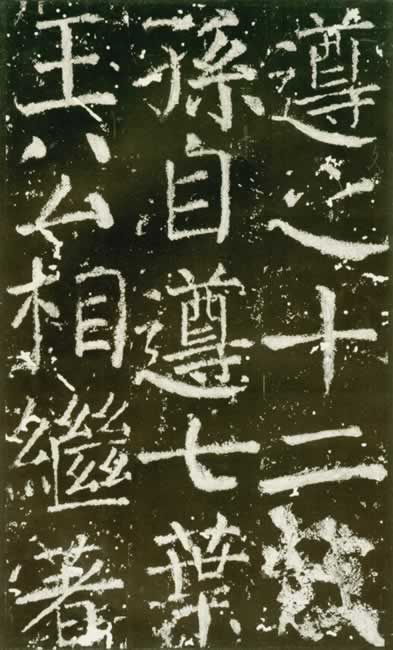 遵之十二
孫自遵七葉
王公相繼著